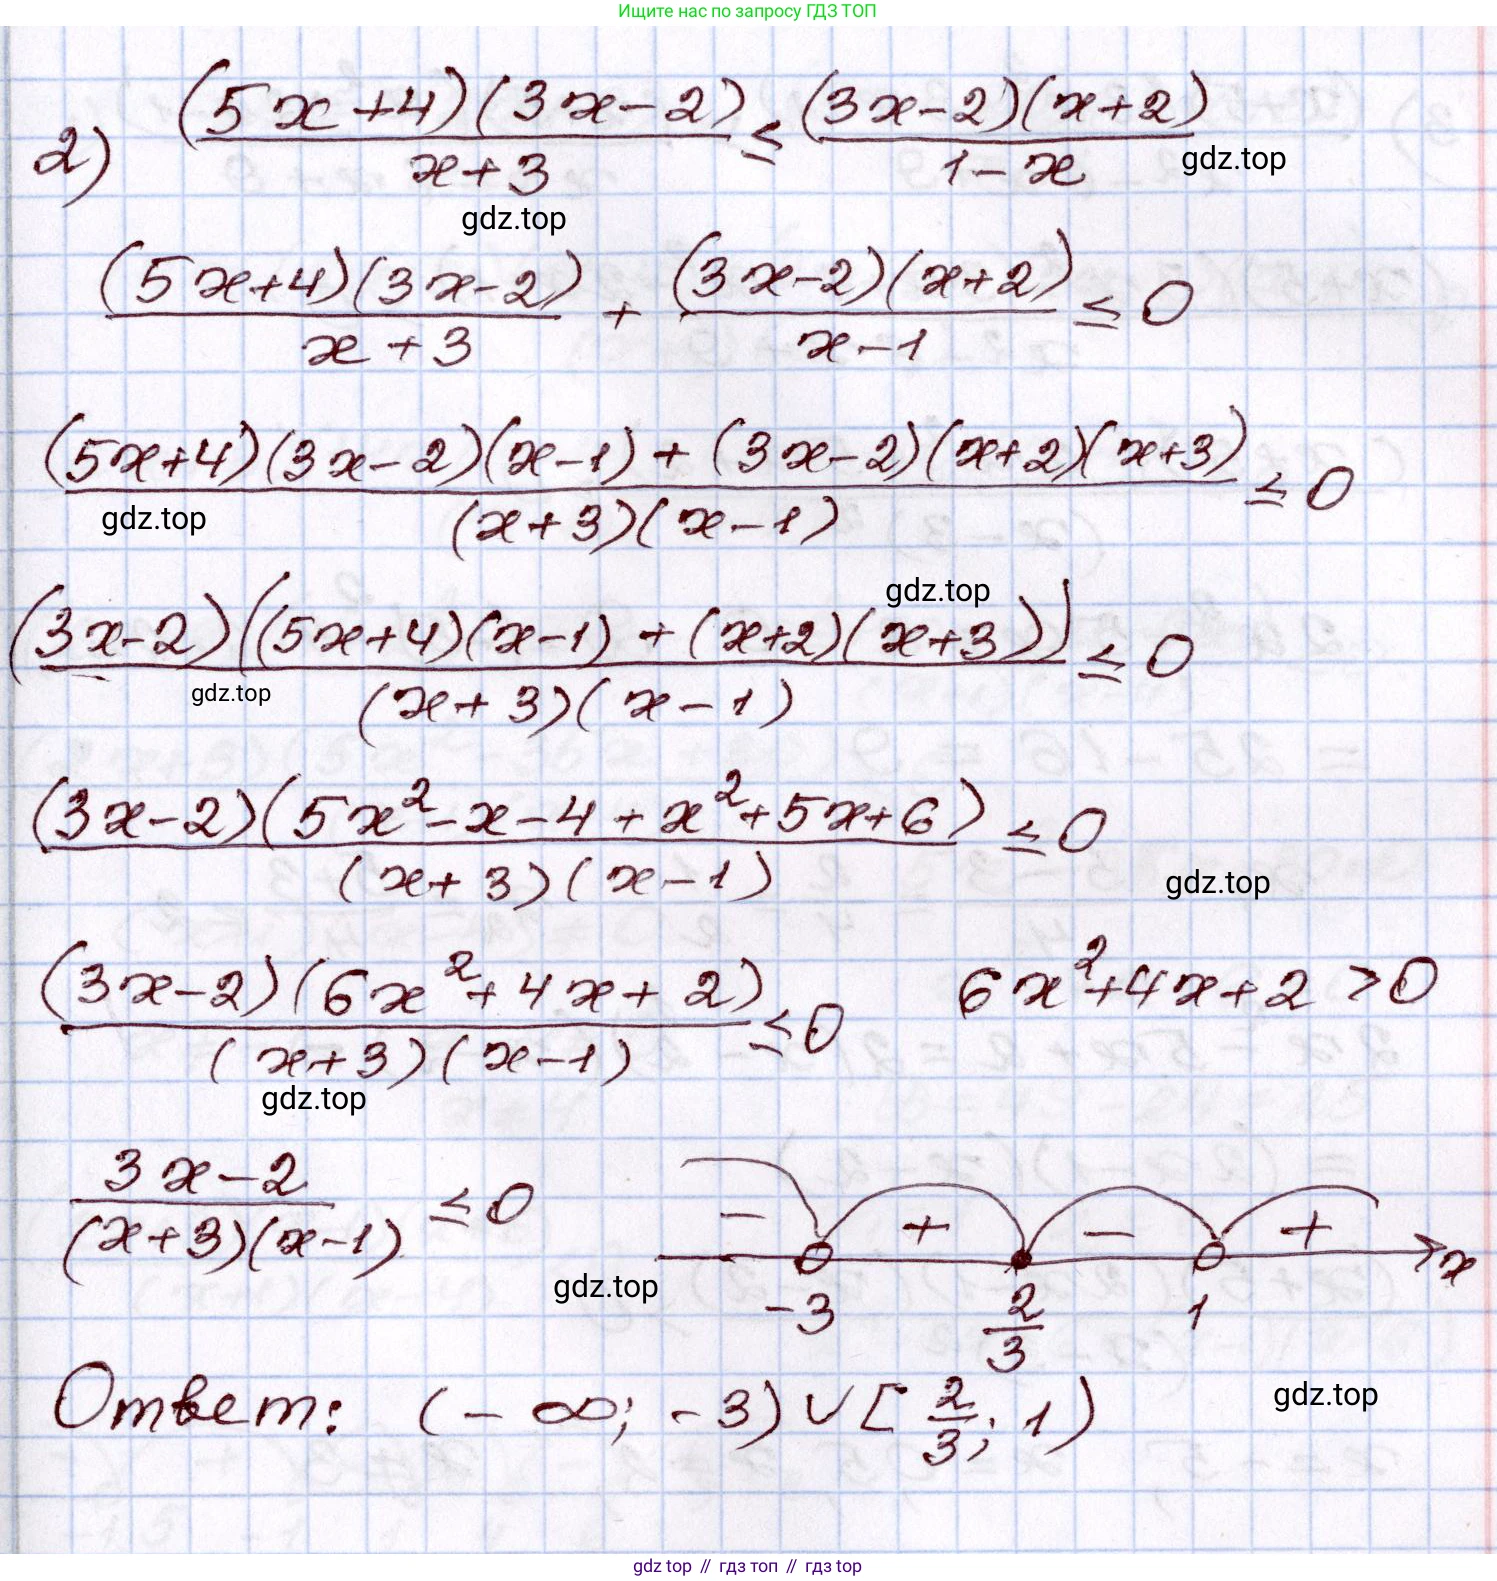 Ищите нас по запросу ГДЗ ТОП
2) (5x+4)(3x-2)/(x+3) ≤ (3x-2)(x+2)/(1-x)
gdz.top
gdz.top
(5x+4)(3x-2)/(x+3) + (3x-2)(x+2)/(x-1) ≤ 0
((5x+4)(3x-2)(x-1) + (3x-2)(x+2)(x+3))/((x+3)(x-1)) ≤ 0
gdz.top
gdz.top
(3x-2)((5x+4)(x-1) + (x+2)(x+3))/((x+3)(x-1)) ≤ 0
gdz.top
(3x-2)(5x²-x-4+x²+5x+6)/((x+3)(x-1)) ≤ 0
gdz.top
(3x-2)(6x²+4x+2)/((x+3)(x-1)) ≤ 0 6x²+4x+2 > 0
gdz.top
(3x-2)/((x+3)(x-1)) ≤ 0 - + - + x
gdz.top
-3 2/3 1
Ответ: (-∞; -3) ∪ [2/3; 1)
gdz.top
gdz top // гдз топ // гдз top